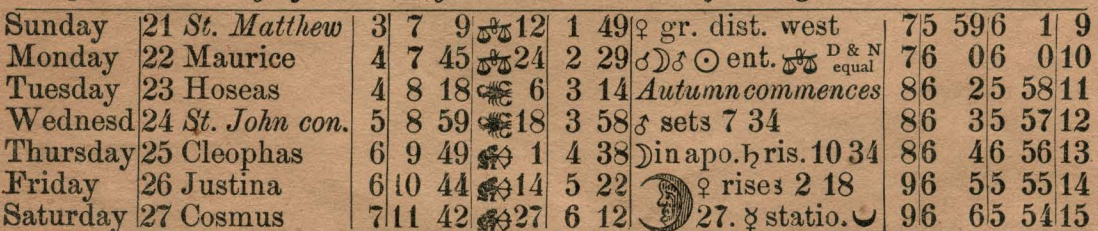 Sunday 21 St. Matthew 3 7 9 ♎ 12 1 49 ♀ gr. dist. west 7 5 59 6 1 9
Monday 22 Maurice 4 7 45 ♎ 24 2 29 ☌☽♂ ☉ ent. ♎ D & N equal 7 6 0 6 0 10
Tuesday 23 Hoseas 4 8 18 ♏ 6 3 14 Autumn commences 8 6 2 5 58 11
Wednesd 24 St. John con. 5 8 59 ♏ 18 3 58 ♂ sets 7 34 8 6 3 5 57 12
Thursday 25 Cleophas 6 9 49 ♐ 1 4 38 ☽ in apo. ♄ ris. 10 34 8 6 4 5 56 13
Friday 26 Justina 6 10 44 ♐ 14 5 22 ♀ rises 2 18 9 6 5 5 55 14
Saturday 27 Cosmus 7 11 42 ♐ 27 6 12 27. ☿ statio. 9 6 6 5 54 15